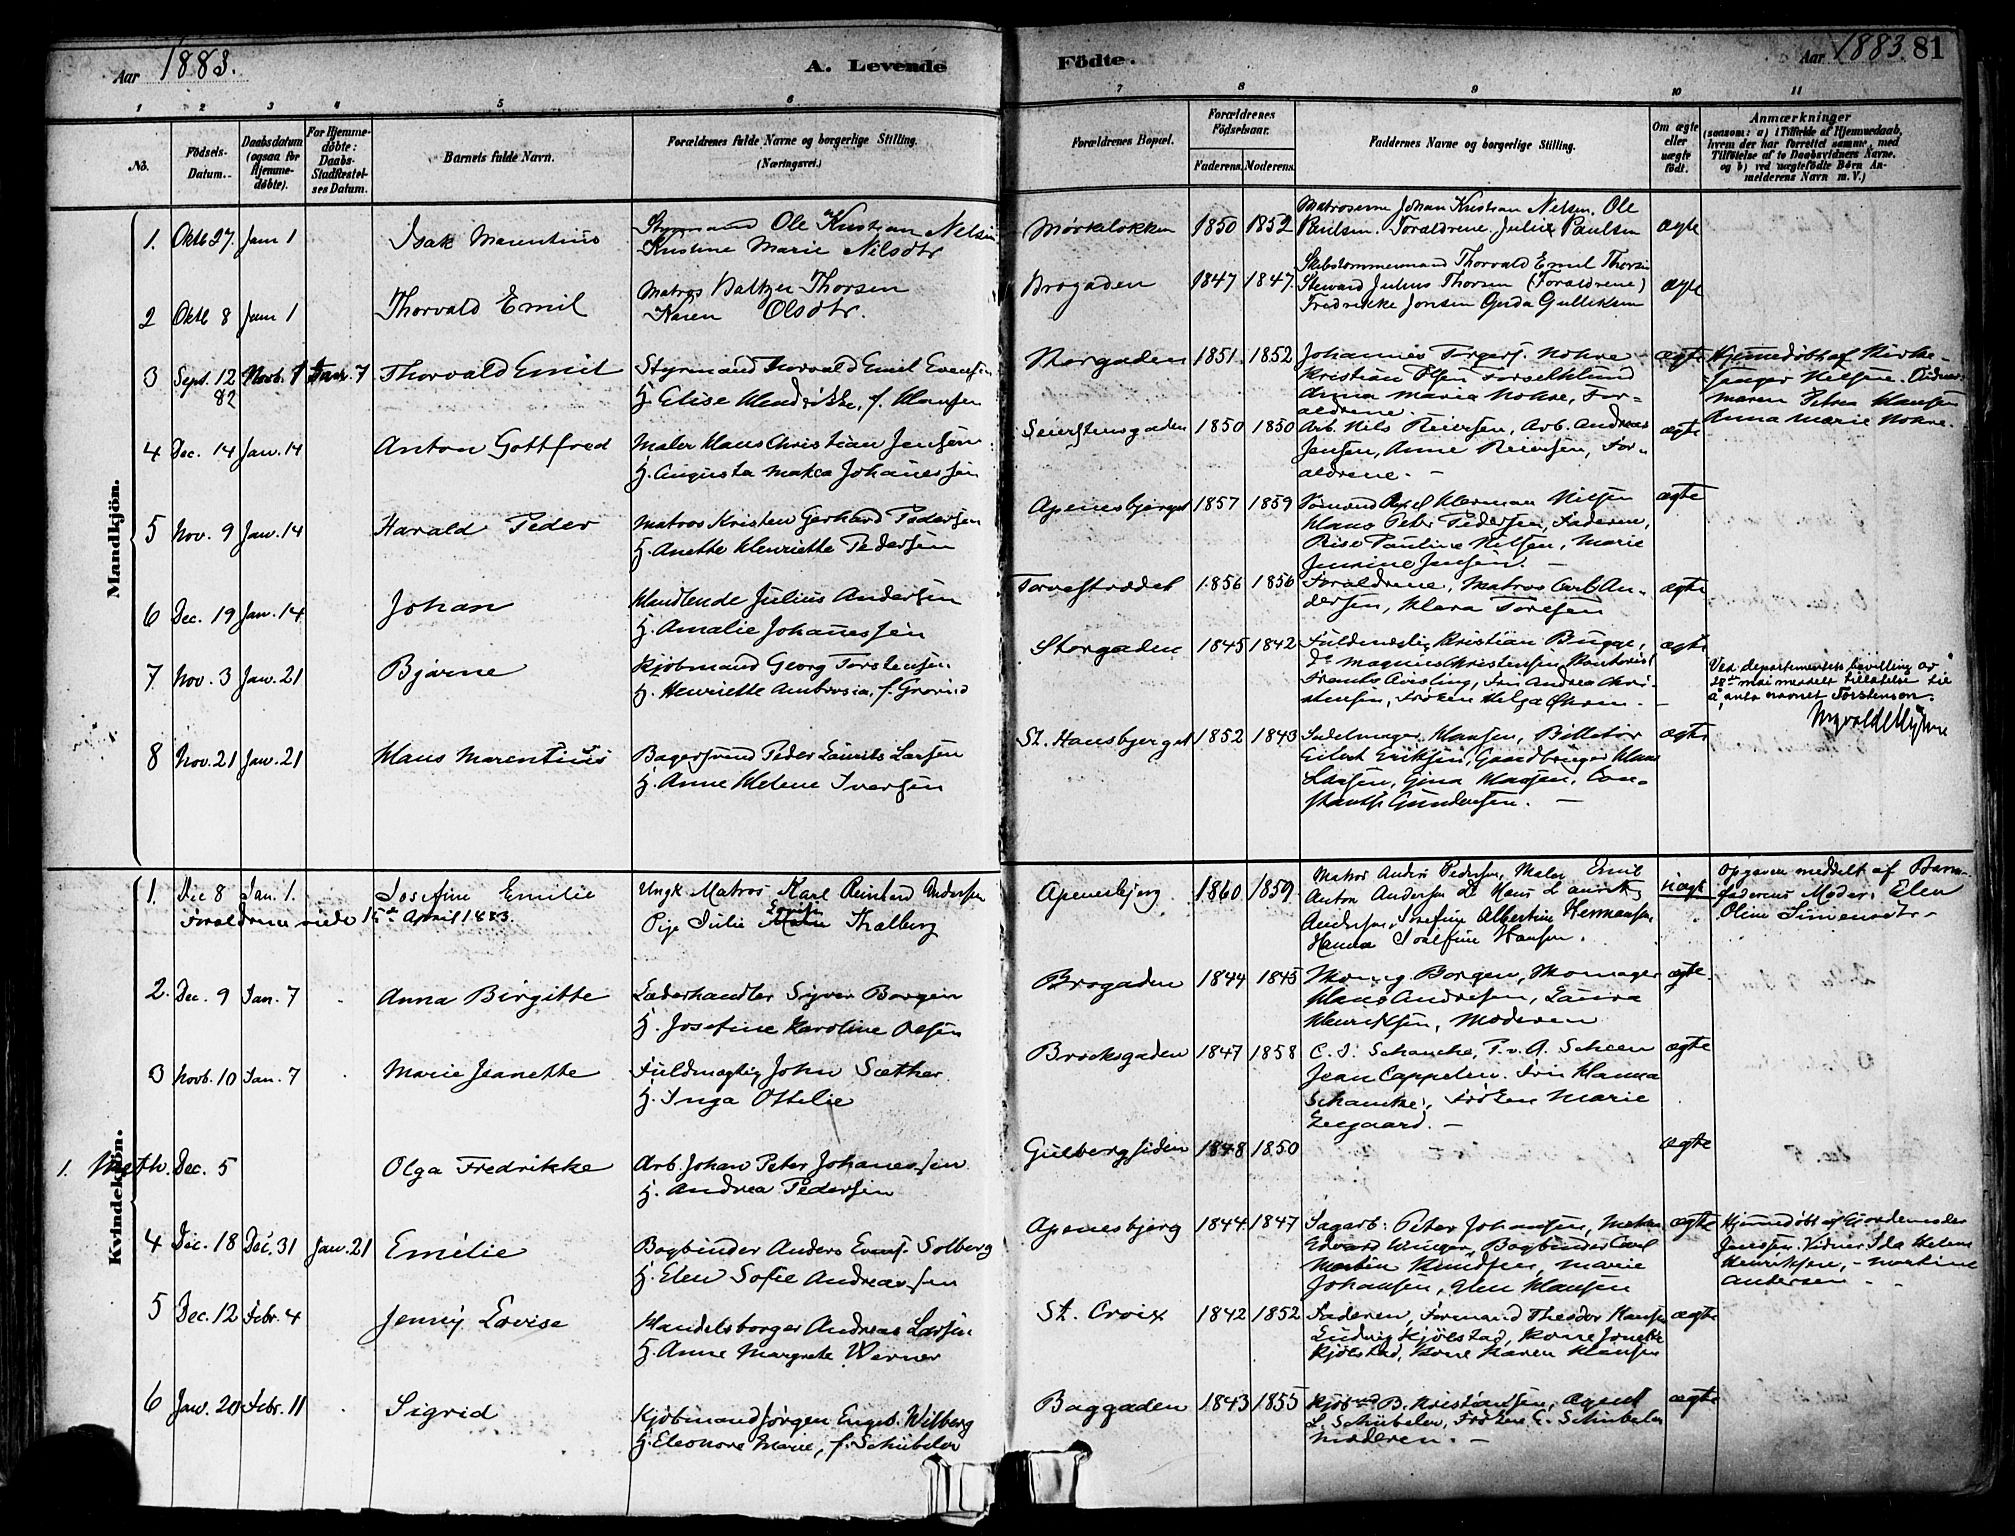 Aar 1883.
A. Levende
Födte.
Aar 1883. 81
1 2 3 4 5 6 7 8 9 10 11
No.
Födsels-Datum.
Daabsdatum (ogsaa for Hjemme-døbte).
For Hjemme-døbte: Daabs-Stadfæstel-ses Datum.
Barnets fulde Navn.
Forældrenes fulde Navne og borgerlige Stilling. (Næringsvei.)
Forældrenes Bopæl.
Forældrenes Födselsaar.
Faderens. Moderens.
Faddernes Navne og borgerlige Stilling.
Om ægte eller uægte født.
Anmærkninger
(saasom: a) i Tilfælde af Hjemmedaab, hvem der har forrettet samme, med Tilføielse af to Daabsvidners Navne, og b) ved uægtefødte Børn An-melderens Navn m. V.)
Mandkjön.
1. Oktb 27. Jan 1 Isak Marentius
Styrmand Ole Kristian Nelsen
Kristine Marie Nilsdtr
Mørkeløkken 1850 1852
Matroserne Johan Kristian Nelsen, Ole
Paulsen. Forældrene. Julie Paulsen
ægte
2 Oktb 8 Jan 1 Thorvald Emil
Matros Baltzer Thorsen
Karen Olsdtr.
Brogaden 1847 1847.
Skibstømmermand Thorvald Emil Thorsen
Steward Julius Thorsen (Forældrene)
Fredrikke Jonsen Gyda Gulliksen
ægte
3 Sept. 12 82 Novb. 9 Jan. 7 Thorvald Emil
Styrmand Thorvald Emil Evensen
H. Elise Hendrikke, f. Hansen
Norgaden 1851. 1852
Johannes Torgers. Nohre
Kristian Olsen
Anna Maria Nohre, For-
ældrene.
ægte
Hjemmedøbt af Kirke-
sanger Nilsen.
Petra Hansen
Anna Marie Nohre.
4 Dec. 14 Jan. 14 Anton Gottfred
Maler Hans Christian Jensen
H. Augusta Johanessen
Seierstensgaden 1850 1850
Arb Nils Reiersen, Arb. Andreas
Jensen, Anne Reiersen, For-
ældrene. —
ægte
5 Nov. 9 Jan. 14 Harald Peder
Matros Kristen Gerhard Pedersen
H. Anette Henriette Pedersen
Apenesbjerget 1857 1859
Sømand Axel Herman Nilsen
Hans Peter Pedersen, Faderen,
Pauline Nilsen, Marie
Jensen. —
ægte
6 Dec. 19 Jan. 14 Johan
Handlende Julius Andersen
H. Amalie Johanessen
Torvestrædet 1856 1856
Forældrene, Matros Carl An-
dersen, Klara Toresen
ægte
7 Nov. 3 Jan. 21 Bjarne
Kjøbmand Georg Torstensen
H. Henriette Ambrosia, f. Grønvd
Storgaden 1845 1842
Fuldmægtig Kristian Bugge,
Do Magnus Christensen
Frøken Helga
ægte
Ved departementets bevilling av
28de mai meddelt tillatelse til
å anta navnet Torstenson.
8 Nov. 21 Jan. 21 Hans Marentius
Bagersvend Peder Lauritz Larsen
H. Anne Helene Iversen
St. Hansbjerget 1852 1843
Sadelmager Hansen, Billetør
Eilert Eriksen, Gaardbruger Hans
Larsen, Gina Hansen, Con-
stantse Gundersen. —
ægte
Kvindekjön.
1. Dec 8 Jan. 1. Josefine Emilie
Forældrene viede 15de April 1883.
Ungk Matros Karl Reinhard Andersen
Pige Julie Emilie Thalberg
Apenesbjerg 1860 1859
Matros Andr. Pedersen, Maler Emil
Anton Andersen Do Hans Lauritz
Andersen, Josefine Albertine Hermansen
Hanna Josefine Hansen.
uægte
Opgaven meddelt af Barne-
faderens Moder: Elen
Oline Simensdtr. —
2. Dec. 9 Jan. 7 Anna Birgitte
Læderhandler Syver Borgen
H. Josefine Karoline Olsen
Brogaden 1844 1845
Skomg. Borgen, Skomager
Hans Andresen, Laura
Henriksen, Moderen
ægte.
3 Novb. 10 Jan. 7 Marie Jeanette
Fuldmægtig John Sæther
H. Inga Ottelie
Brodsgaden 1847 1858
C. S. Schanche, P. v. A. Scheen
Jean Cappelen. Fru Hanna
Schanche, Frøken Marie
Zeegaard. —
ægte
1. Meth. Dec. 5 Olga Fredrikke
Arb. Johan Peter Johanessen
H. Andrea Pedersen
Gulbergsiden 1848 1850
ægte
4 Dec. 18 Dec. 31 Jan. 21 Emélie
Bogbinder Anders Evens. Solberg
H. Elen Sofie Andreassen
Apenesbjerg 1844. 1847
Sagarb. Peter Johansen,
Edvard Unger, Bogbinder Carl
Martin Knudsen, Marie
Johansen, Elen Hansen
ægte
Hjemmedøbt af Gjordemoder
Jenssen. Vidner Ida Helene
Henriksen, — Martine
Andersen —
5 Dec. 12 Febr. 4 Jenny Lovise
Handelsborger Andreas Larsen
H. Anne Margrete Werner
St. Croix 1842 1852
Faderen, Formand Theodor Hansen
Ludvig Kjølstad, Kone Jonette
Kjølstad, Kone Karen Hansen
ægte
6 Jan. 20 Febr. 11 Sigrid
Kjøbmand Jørgen Engeb. Wilberg
H. Eleonore Marie, f. Schübeler
Baggaden 1843 1855
Kjøbmd B. Kristiansen, Agent
L. Schübeler, Frøken C. Schübeler
Moderen. —
ægte